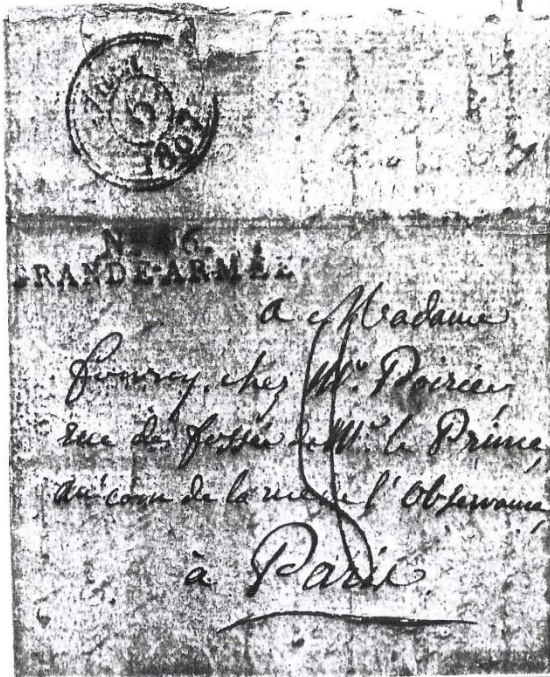 6
1807
N° 16.
GRANDE-ARMÉE
a Madame
fourcy, chez Mr. Poirier
rue des fossés de Mr. le Prince,
au coin de la rue de l'Observance,
à Paris